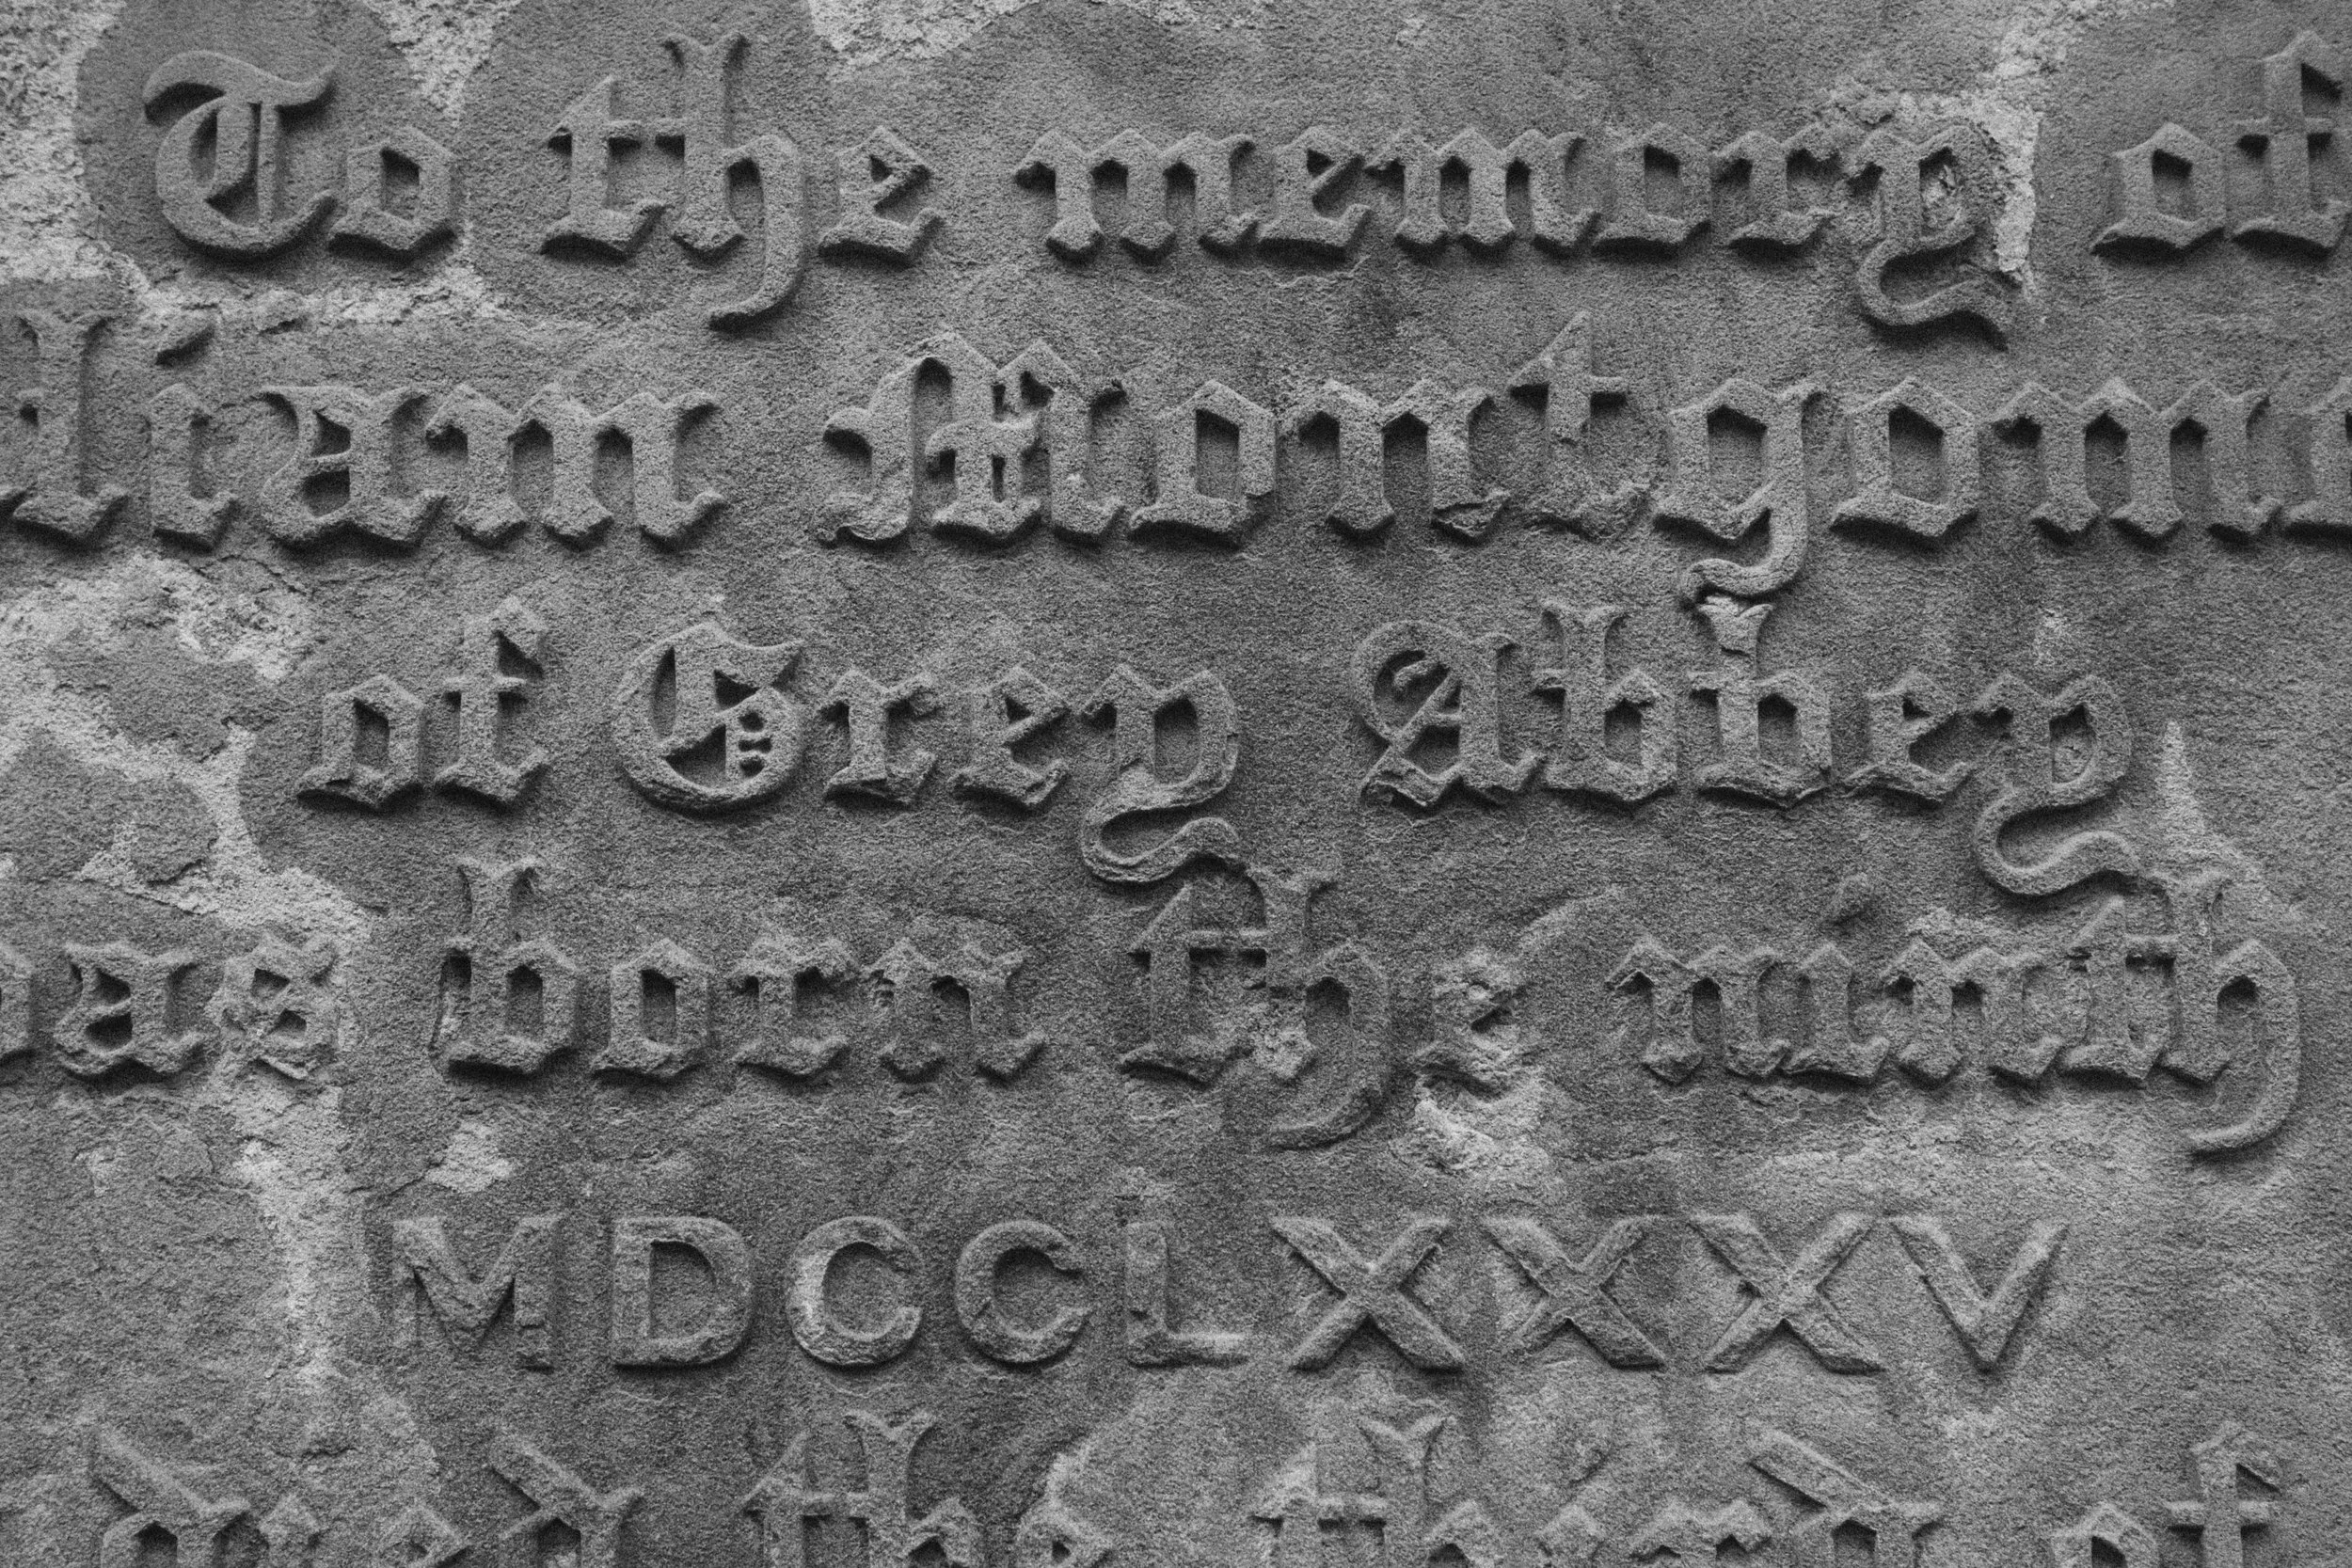 To the memory of
liam Montgom
of Grey Abbey
was born the ninth
MDCCLXXXV
died the third of